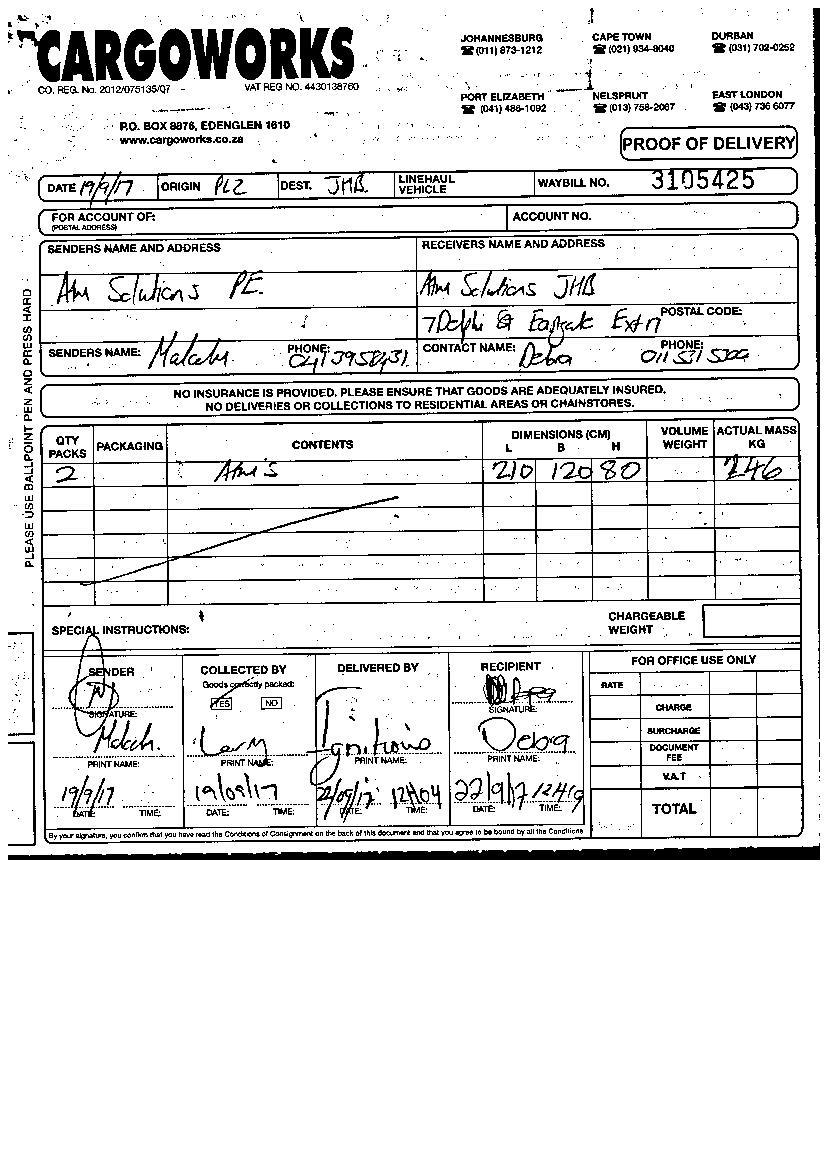 CARGOWORKS
CO. REG. No. 2012/075135/07 - VAT REG NO. 4430138760
JOHANNESBURG CAPE TOWN DURBAN
☎ (011) 873-1212 ☎ (021) 934-8040 ☎ (031) 702-0252
PORT ELIZABETH NELSPRUIT EAST LONDON
☎ (041) 486-1092 ☎ (013) 758-2067 ☎ (043) 736 6077
P.O. BOX 8876, EDENGLEN 1610
www.cargoworks.co.za
PROOF OF DELIVERY
DATE 19/9/17 ORIGIN PLZ DEST. JHB. LINEHAUL VEHICLE WAYBILL NO. 3105425
FOR ACCOUNT OF: ACCOUNT NO.
(POSTAL ADDRESS)
SENDERS NAME AND ADDRESS RECEIVERS NAME AND ADDRESS
Atm Solutions PE. Atm Solutions JHB
7 Delphi St Eastgate Extn POSTAL CODE:
SENDERS NAME: PHONE: 041 3958431 CONTACT NAME: Debra PHONE: 011 531
NO INSURANCE IS PROVIDED. PLEASE ENSURE THAT GOODS ARE ADEQUATELY INSURED.
NO DELIVERIES OR COLLECTIONS TO RESIDENTIAL AREAS OR CHAINSTORES.
PLEASE USE BALLPOINT PEN AND PRESS HARD
QTY PACKS PACKAGING CONTENTS DIMENSIONS (CM) L B H VOLUME WEIGHT ACTUAL MASS KG
2 Atm's 210 120 80 246
SPECIAL INSTRUCTIONS: CHARGEABLE WEIGHT
SENDER COLLECTED BY DELIVERED BY RECIPIENT FOR OFFICE USE ONLY
Goods correctly packed:
YES NO
RATE
CHARGE
SIGNATURE: SIGNATURE:
SURCHARGE
Debra
DOCUMENT FEE
PRINT NAME: PRINT NAME: PRINT NAME: PRINT NAME:
V.A.T
19/9/17 19/09/17 22/09/17 12H04 22/9/17 12H19
DATE: TIME: DATE: TIME: DATE: TIME: DATE: TIME:
TOTAL
By your signature, you confirm that you have read the Conditions of Consignment on the back of this document and that you agree to be bound by all the Conditions